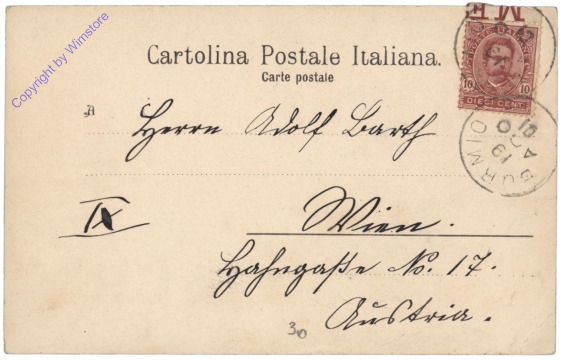 Copyright by Wimstore
Cartolina Postale Italiana.
Carte postale
A
Herrn Adolf Barth
IX
Wien.
Hahngaße No. 17.
Austria.
30
10 10
DIECI CENT.
BORMIO